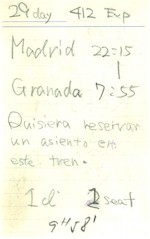 29 day 412 Exp
Madrid 22:15
|
Granada 7:55
Quisiera reservar
un asiento en
este tren.
1 cl 2 seat
9H 58'